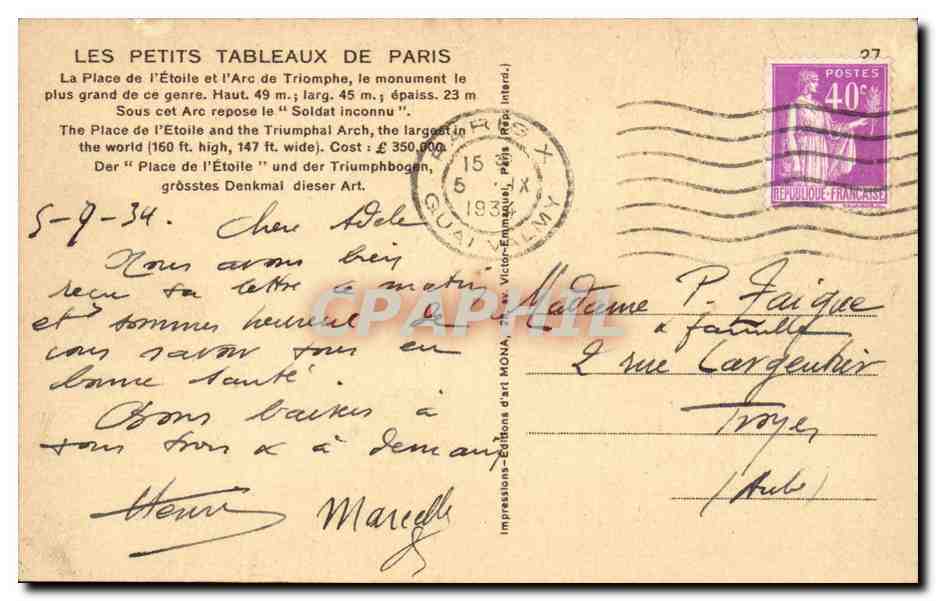 LES PETITS TABLEAUX DE PARIS
La Place de l'Étoile et l'Arc de Triomphe, le monument le
plus grand de ce genre. Haut. 49 m.; larg. 45 m.; épaiss. 23 m
Sous cet Arc repose le "Soldat inconnu".
The Place de l'Etoile and the Triumphal Arch, the largest in
the world (160 ft. high, 147 ft. wide). Cost: £ 350,000.
Der "Place de l'Étoile" und der Triumphbogen,
grösstes Denkmal dieser Art.
5-9-34. Chère Adèle
Nous avons bien
reçu ta lettre ce matin
et sommes heureux de
vous savoir tous en
bonne santé.
Bons baisers à
tous trois & à demain
Henri Marcelle
Impressions-Editions d'art MONA, Victor-Emmanuel, Paris (Rep. Interd.)
PARIS X
15
5 IX
1934
QUAI VALMY
27
POSTES
40c
RÉPUBLIQUE-FRANÇAISE
Madame P.
& famille
2 rue Largentier
Troyes
(Aube)
CPAPHIL